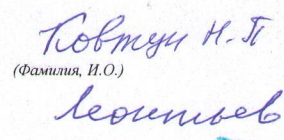 Ковтун Н.П
(Фамилия, И.О.)
Леонтьев